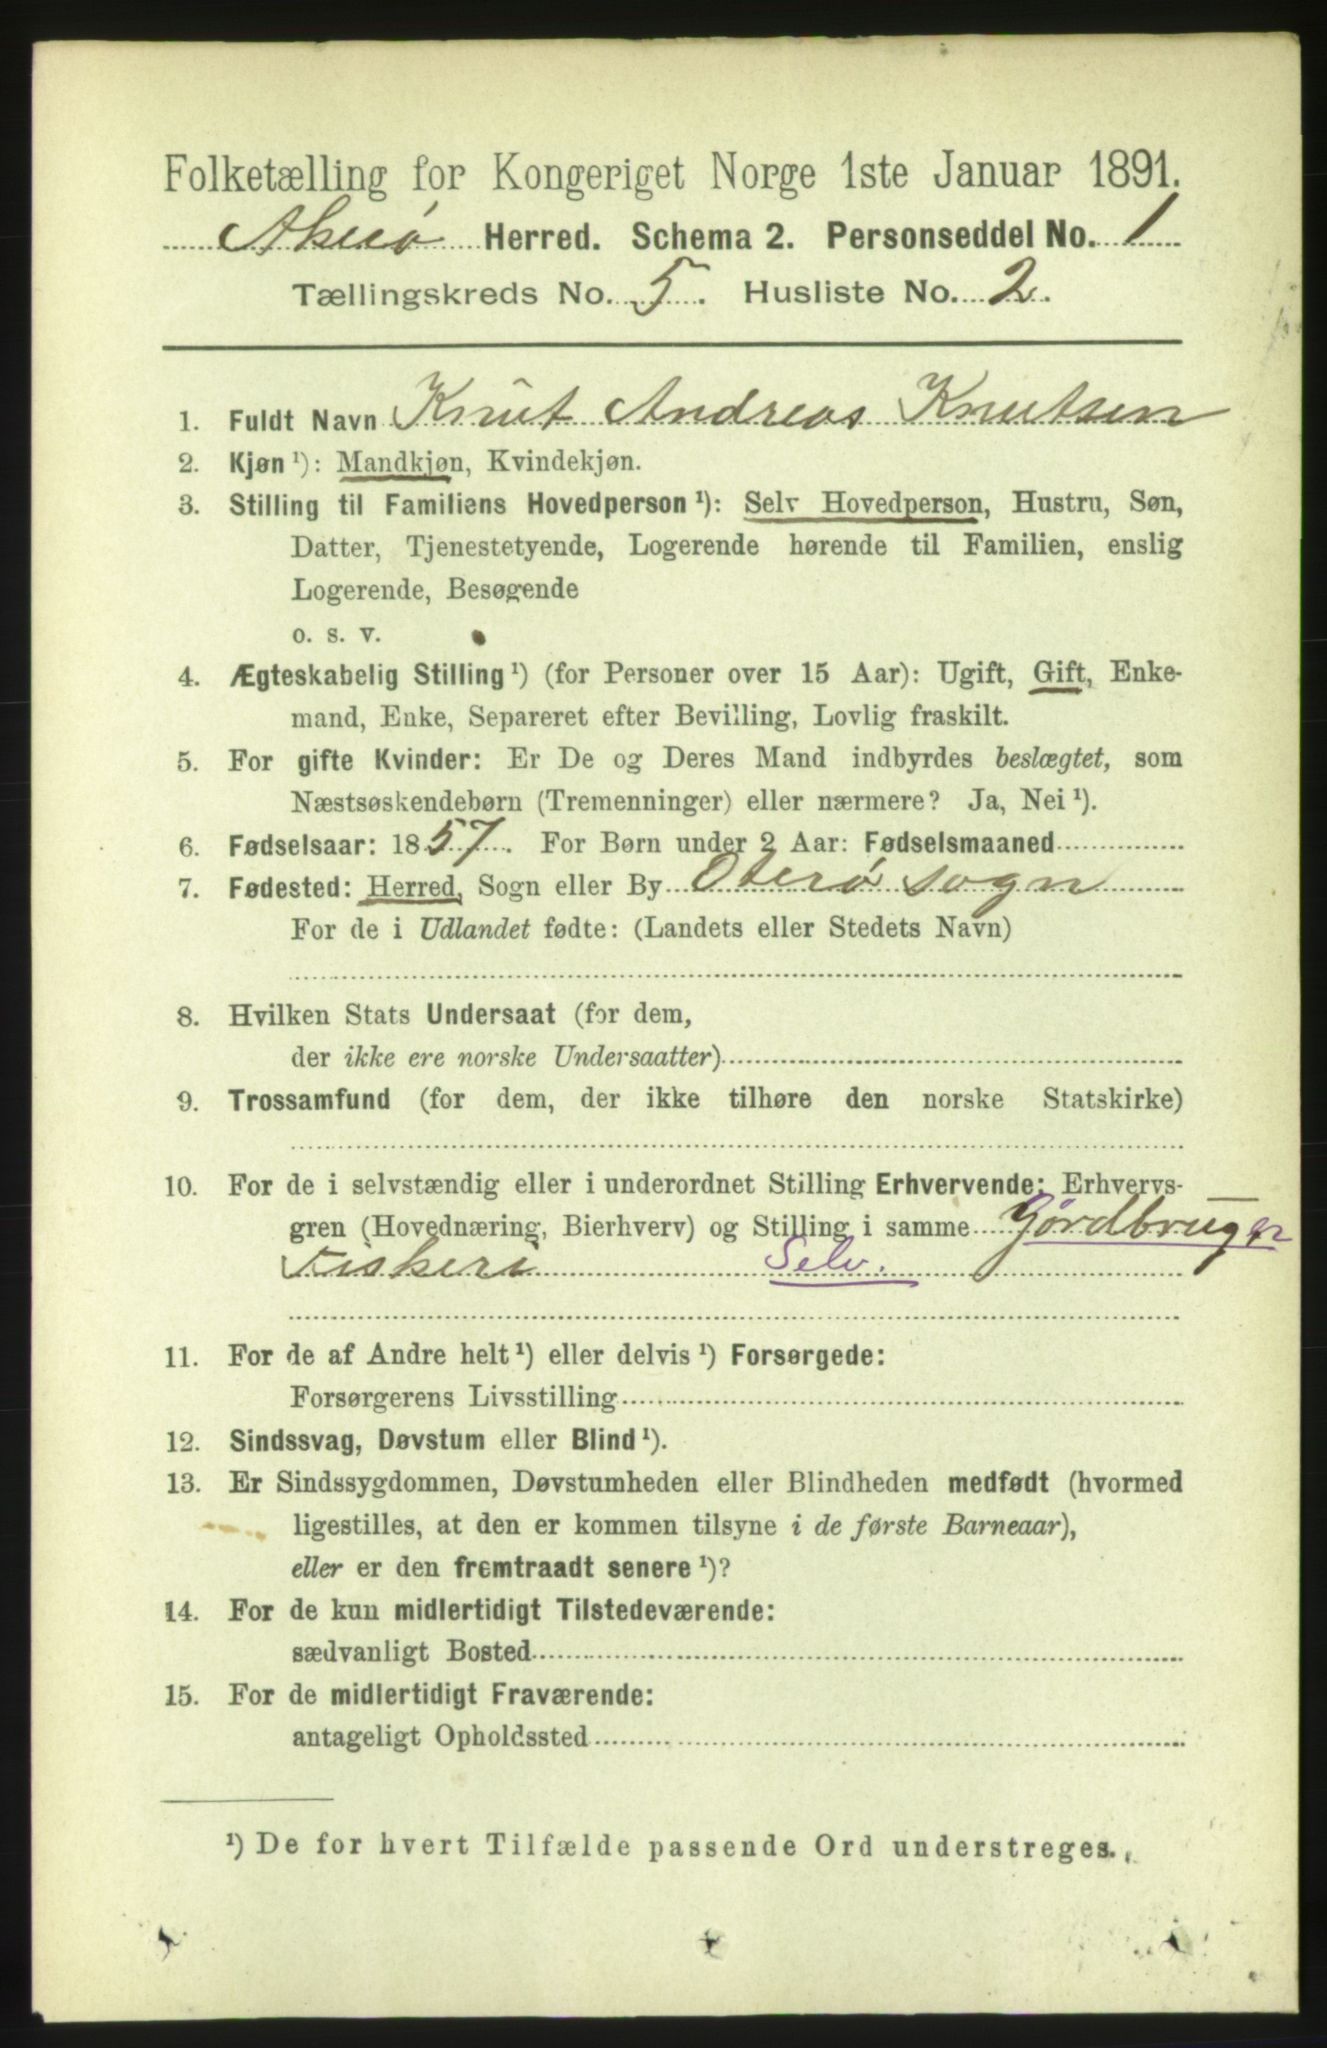 Folketælling for Kongeriget Norge 1ste Januar 1891.
Akerø Herred. Schema 2. Personseddel No. 1
Tællingskreds No. 5. Husliste No. 2.
1. Fuldt Navn Knut Andreas Knutsen
2. Kjøn ¹): Mandkjøn, Kvindekjøn.
3. Stilling til Familiens Hovedperson ¹): Selv Hovedperson, Hustru, Søn,
Datter, Tjenestetyende, Logerende hørende til Familien, enslig
Logerende, Besøgende
o. s. v.
4. Ægteskabelig Stilling ¹) (for Personer over 15 Aar): Ugift, Gift, Enke-
mand, Enke, Separeret efter Bevilling, Lovlig fraskilt.
5. For gifte Kvinder: Er De og Deres Mand indbyrdes beslægtet, som
Næstsøskendebørn (Tremenninger) eller nærmere? Ja, Nei ¹).
6. Fødselsaar: 1857. For Børn under 2 Aar: Fødselsmaaned
7. Fødested: Herred, Sogn eller By Oterø sogn
For de i Udlandet fødte: (Landets eller Stedets Navn)
8. Hvilken Stats Undersaat (for dem,
der ikke ere norske Undersaatter)
9. Trossamfund (for dem, der ikke tilhøre den norske Statskirke)
10. For de i selvstændig eller i underordnet Stilling Erhvervende: Erhvervs-
gren (Hovednæring, Bierhverv) og Stilling i samme Gördbruger
Fiskeri Selv.
11. For de af Andre helt ¹) eller delvis ¹) Forsørgede:
Forsørgerens Livsstilling
12. Sindssvag, Døvstum eller Blind ¹).
13. Er Sindssygdommen, Døvstumheden eller Blindheden medfødt (hvormed
ligestilles, at den er kommen tilsyne i de første Barneaar),
eller er den fremtraadt senere ¹)?
14. For de kun midlertidigt Tilstedeværende:
sædvanligt Bosted
15. For de midlertidigt Fraværende:
antageligt Opholdssted
¹) De for hvert Tilfælde passende Ord understreges.